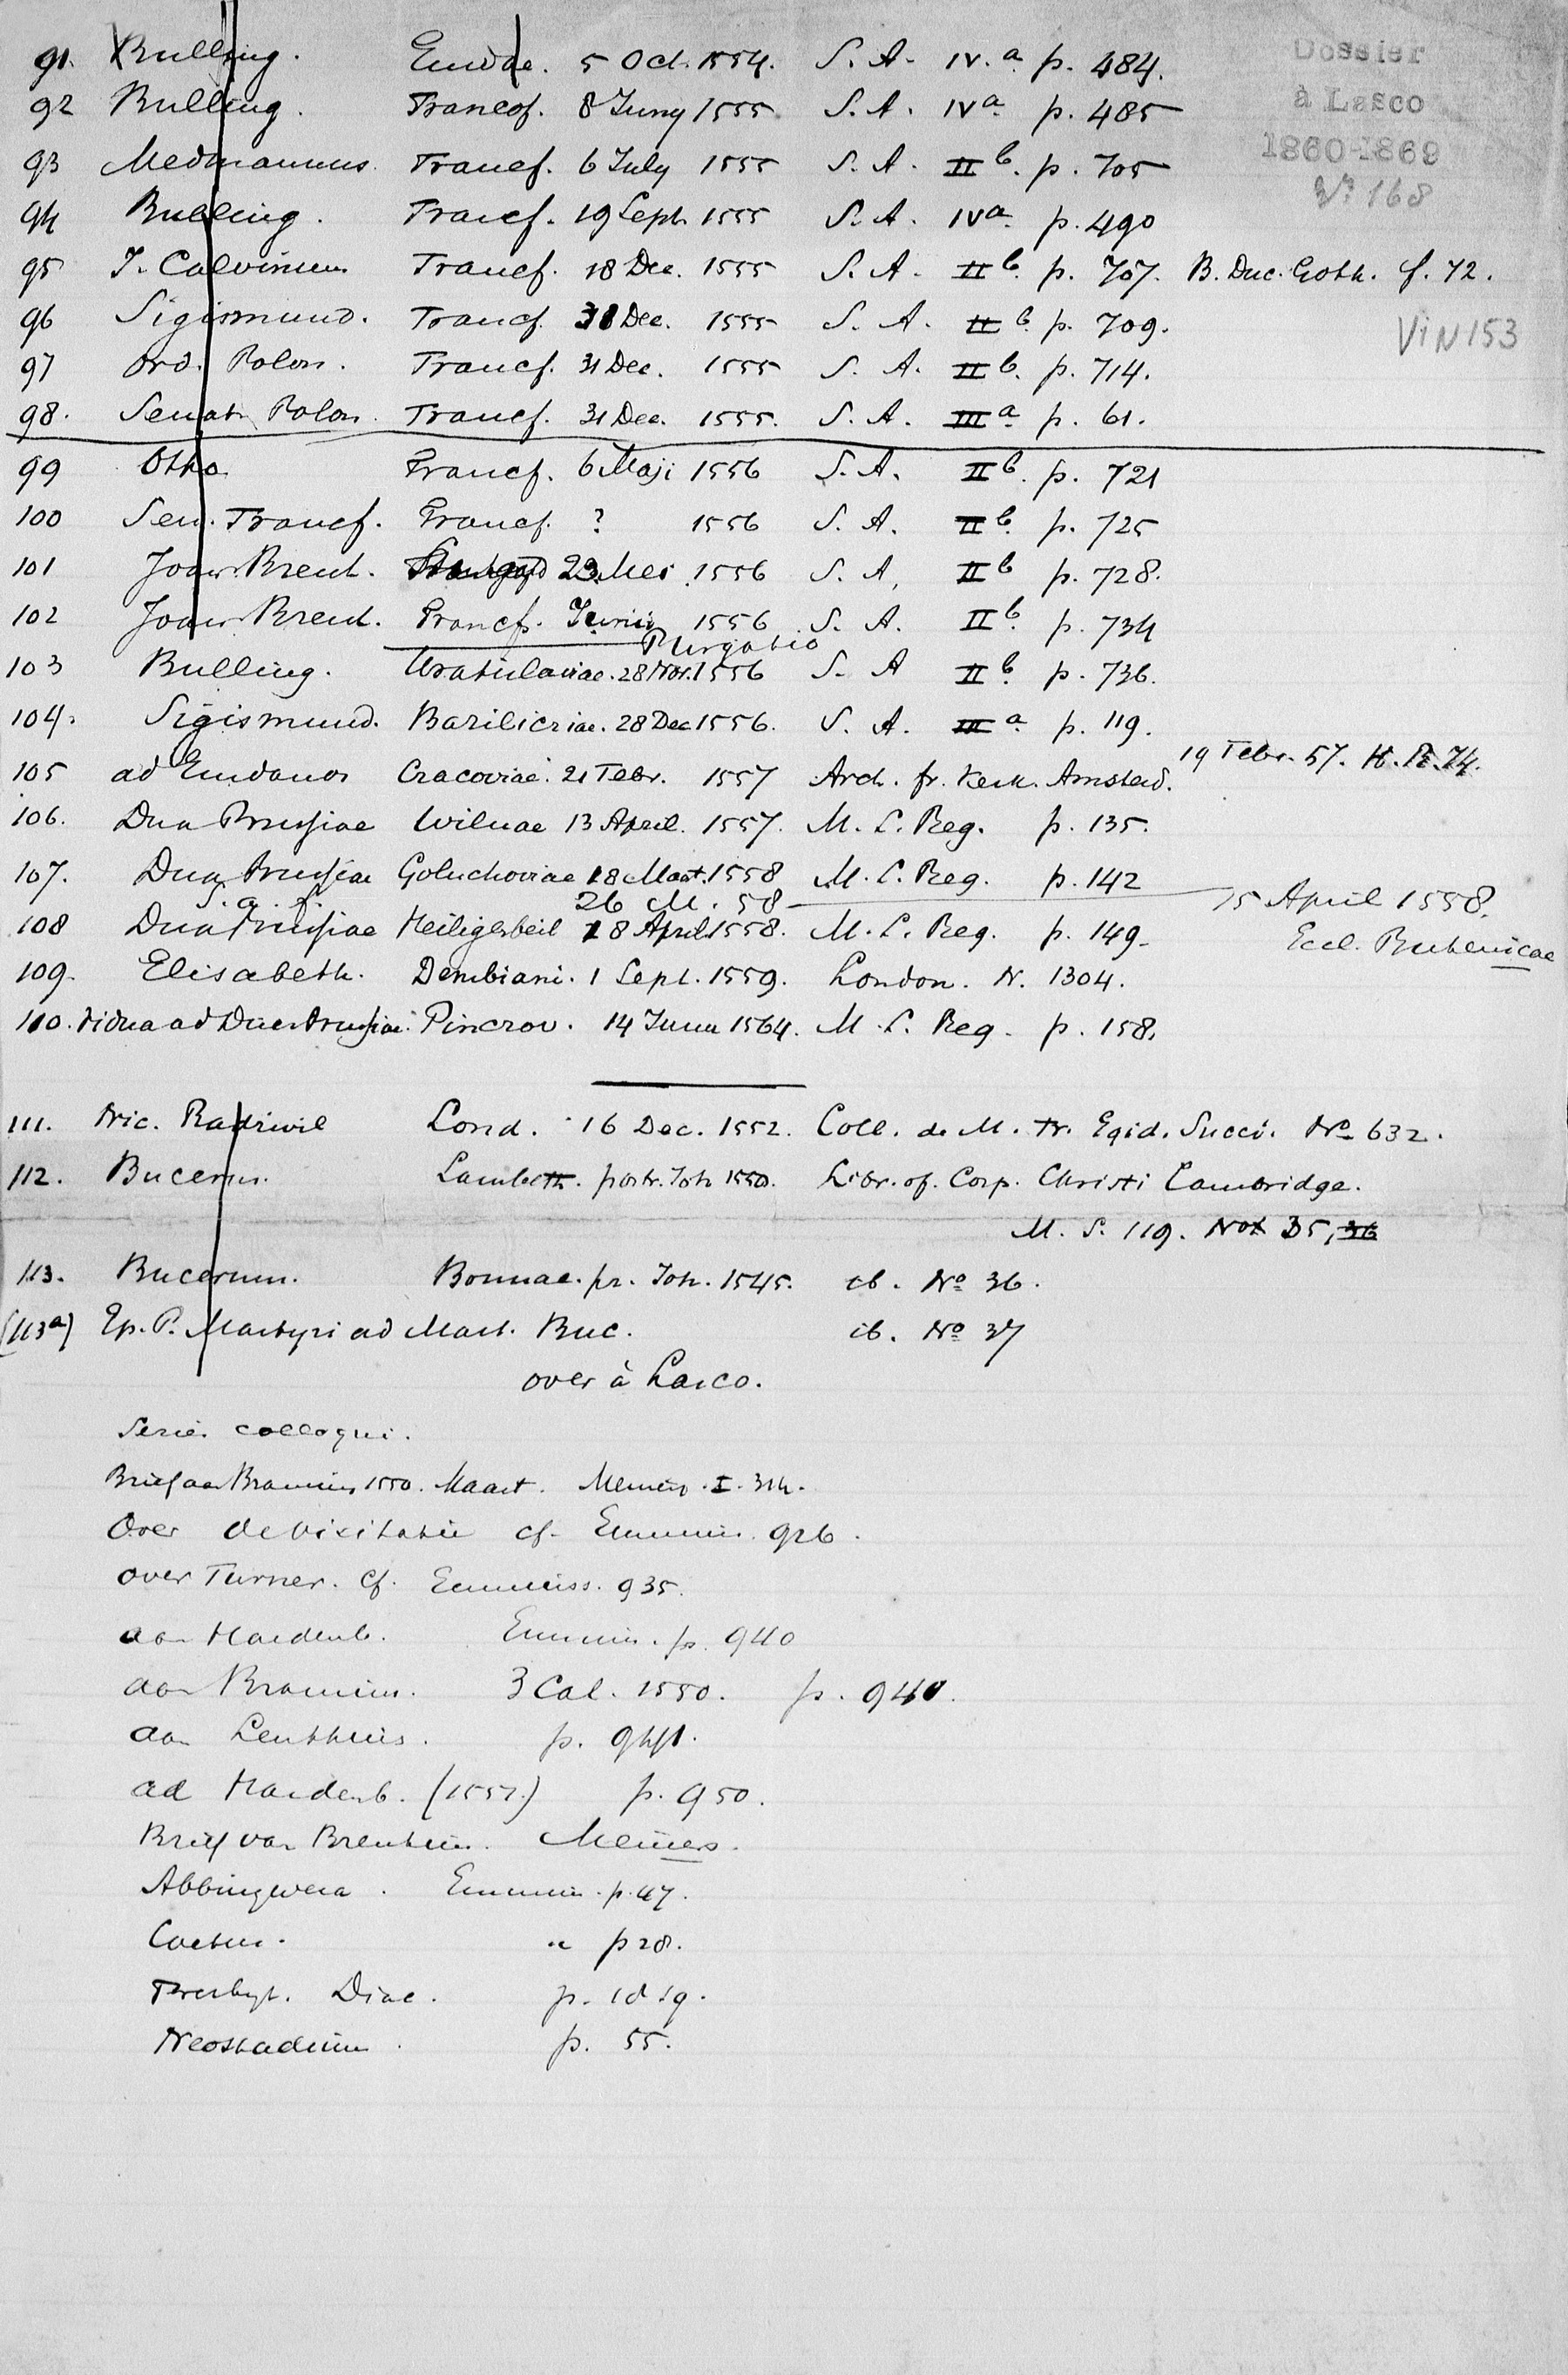 Dossier
à Lasco
1860-1869
No 168
91. Bulling. Emdae. 5 Oct. 1554. S. A. IV.a p. 484.
92 Bulling. Francof. 8 Juny 1555 S. A. IVa p. 485
93 Medmannus. Francf. 6 July 1555 S. A. IIb. p. 705
94 Bulling. Francf. 19 Sept. 1555 S. A. IVa. p. 490
95 J. Calvinum Francf. 18 Dec. 1555 S. A. IIb. p. 707. B. Duc. Goth. f. 72.
96 Sigismund. Francf. 31 Dec. 1555 S. A. IIb. p. 709.
VIN153
97 Ord. Polon. Francf. 31 Dec. 1555 S. A. IIb. p. 714.
98. Senat. Polon. Francf. 31 Dec. 1555. S. A. IIIa p. 61.
99 Otho Francf. 6 Maji 1556 S. A. IIb. p. 721
100 Sen. Francf. Francf. ? 1556 S. A. IIb. p. 725
101 Joan. Brent. 23 Mei 1556 S. A. IIb p. 728.
102 Joan. Brent. Francf. Junii 1556 S. A. IIb. p. 734
Purgatio
103 Bulling. Wratislaviae. 28 Nov. 1556 S. A IIb. p. 736.
104. Sigismund. Basiliciae. 28 Dec 1556. S. A. IIIa. p. 119.
105 ad Emdanos Cracoviae. 21 Febr. 1557 Arch. fr. Kerk. Amsterd. 19 Febr. 57. H. R. 74.
106. Dux Prussiae Wilnae 13 April. 1557. M. S. Reg. p. 135.
107. Dux Prussiae Goluchoviae 18 Maart. 1558 M. S. Reg. p. 142
S. a. R. 26 M. 58 15 April 1558.
108 Dux Prussiae Heiligesbeil 18 April 1558. M. S. Reg. p. 149.
Eccl. Ruthenicae
109. Elisabeth. Dembiani. 1 Sept. 1559. London. N. 1304.
110. Vidua ad Ducem Prussiae Pinczov. 14 Juny 1564. M. S. Reg. p. 158.
111. Nic. Radziwil Lond. 16 Dec. 1552. Coll. de M. Tr. Egid. Succi. No 632.
112. Bucerus. Lambeth. postr. Joh 1550. Libr. of. Corp. Christi Cambridge.
M. S. 119. Nox 35, 36
113. Bucerum. Bonnae. pr. Joh. 1545. ib. No 36.
(113a) Ep. P. Martyri ad Mart. Buc. ib. No 37
over à Lasco.
Serie. colloqui.
Brief aan Bramius 1550. Maart. Meiners. I. 314.
Over de visitatie cf. Emmius. 926.
over Turner. cf. Emmius. 935.
aan Hardenb. Emmius. p. 940
aan Bramius. 3 Cal. 1550. p. 940.
aan Lenthius. p. 941.
ad Hardenb. (1551.) p. 950.
Brief van Brentius. Meiners.
Abbingwera. Emmius. p. 47.
Coetus. " p 28.
Presbyt. Diac. p. 18 19.
Neostadium. p. 55.